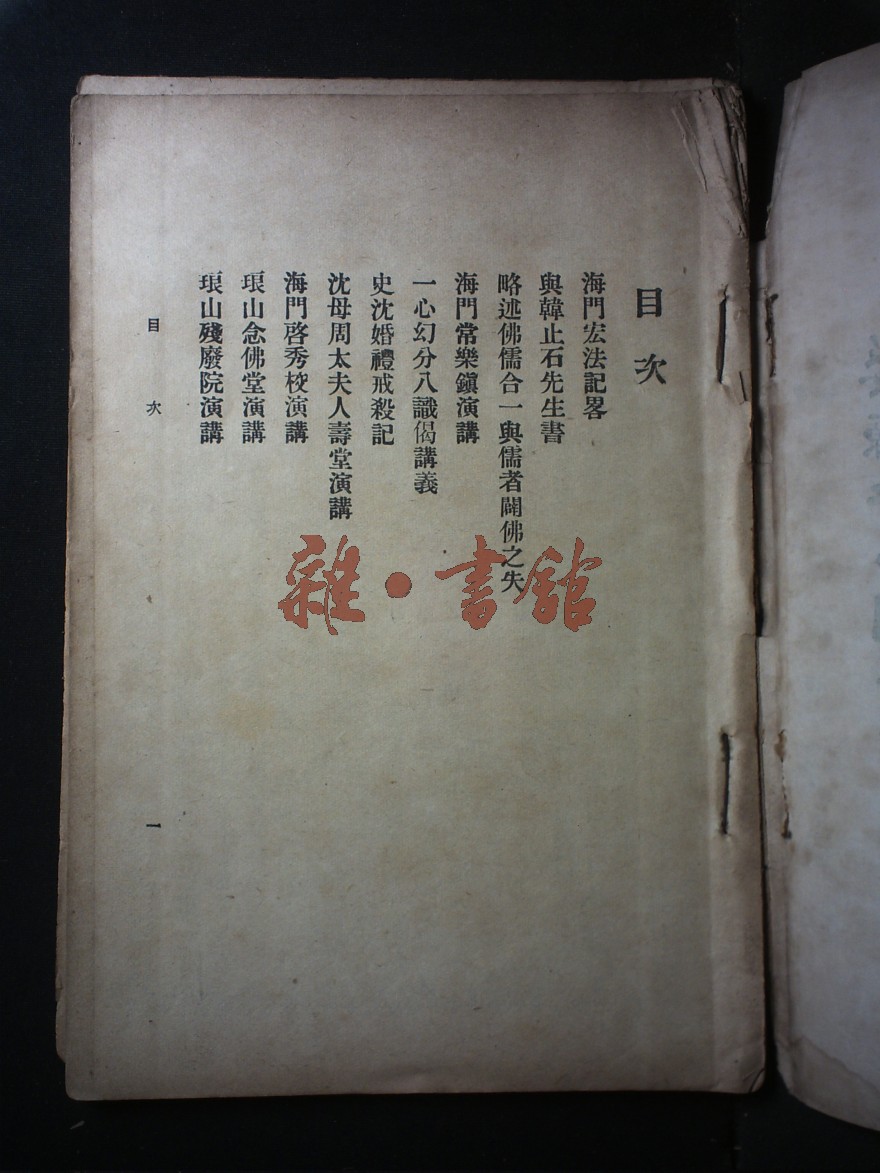 目次
海門宏法記畧
與韓止石先生書
略述佛儒合一與儒者闢佛之失
海門常樂鎮演講
一心幻分八識偈講義
史沈婚禮戒殺記
沈母周太夫人壽堂演講
海門啓秀校演講
琅山念佛堂演講
琅山殘廢院演講
目次
一
雜·書館